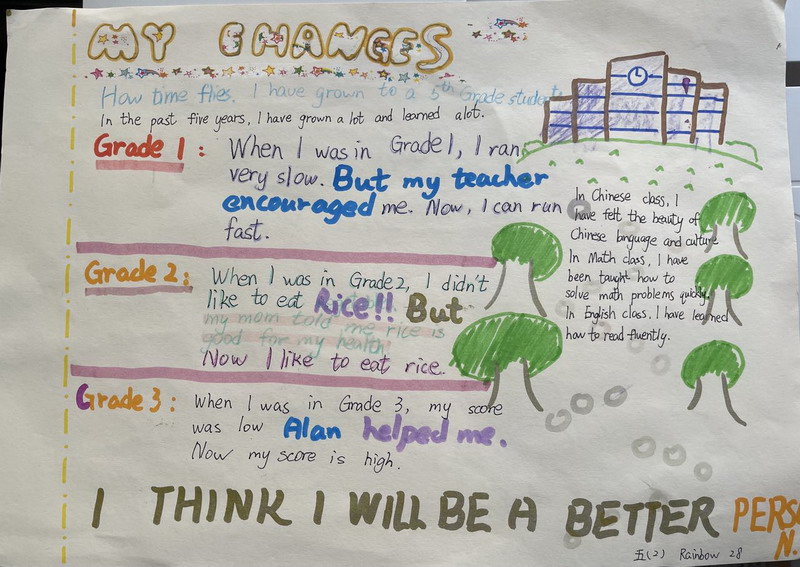 MY CHANGES
How time flies. I have grown to a 5th Grade student.
In the past five years, I have grown a lot and learned alot.
Grade 1: When I was in Grade1, I ran
very slow. But my teacher
encouraged me. Now, I can run
fast.
Grade 2: When I was in Grade2, I didn't
like to eat Rice!! But
my mom told me rice is
good for my health!
Now I like to eat rice.
Grade 3: When I was in Grade 3, my score
was low Alan helped me.
Now my score is high.
In Chinese class, I
have felt the beauty of
Chinese language and culture
In Math class, I have
been taught how to
solve math problems quickly.
In English class, I have learned
how to read fluently.
I THINK I WILL BE A BETTER PERS
N.
五(2) Rainbow 28